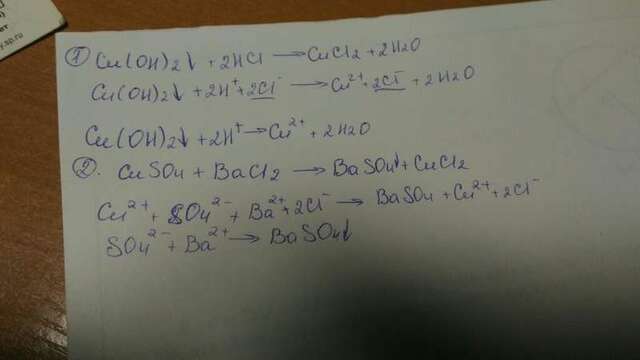 y.sp.ru
① Cu(OH)2↓ + 2HCl → CuCl2 + 2H2O
Cu(OH)2↓ + 2H⁺ + 2Cl⁻ → Cu²⁺ + 2Cl⁻ + 2H2O
Cu(OH)2↓ + 2H⁺ → Cu²⁺ + 2H2O
②. CuSO4 + BaCl2 → BaSO4↓ + CuCl2
Cu²⁺ + SO4²⁻ + Ba²⁺ + 2Cl⁻ → BaSO4 + Cu²⁺ + 2Cl⁻
SO4²⁻ + Ba²⁺ → BaSO4↓